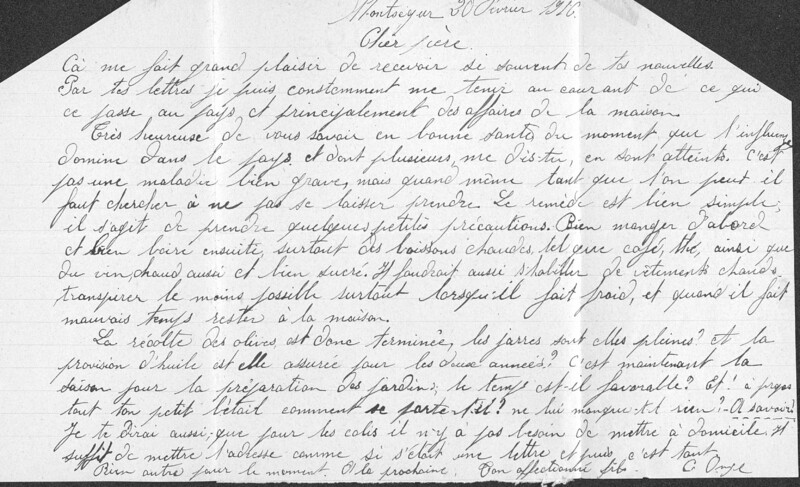 Montségur 20 Février 1916.
Cher père.
Cà me fait grand plaisir de recevoir si souvent de tes nouvelles.
Par tes lettres je puis constemment me tenir au courant de ce qui
ce passe au pays et principalement des affaires de la maison.
Très heureuse de vous savoir en bonne santé du moment que l'influenza
domine dans le pays et dont plusieurs, me dis-tu, en sont atteints. C'est
pas une maladie bien grave, mais quand même tant que l'on peut il
faut chercher à ne pas se laisser prendre. Le remède est bien simple,
il s'agit de prendre quelques petites précautions. Bien manger d'abord
et bien boire ensuite, surtout des boissons chaudes, tel que café, thé, ainsi que
du vin chaud aussi et bien sucré. Il faudrait aussi s'habiller de vêtements chauds,
transpirer le moins possible surtout lorsqu'il fait froid, et quand il fait
mauvais temps rester à la maison.
La récolte des olives, est donc terminée, les jarres sont elles pleines? et la
provision d'huile est elle assurée pour les deux années? C'est maintenant la
saison pour la préparation des jardins; le temps est-il favorable? Et! à propos
tout ton petit bétail comment se porte-t-il? ne lui manque-t-il rien? - A savoir!
Je te dirai aussi, que pour les colis il n-y à pas besoin de mettre à domicile. Il
suffit de mettre l'adresse comme si s'était une lettre et puis c'est tout.
Rien autre pour le moment. A la prochaine. Ton affectionné fils. C